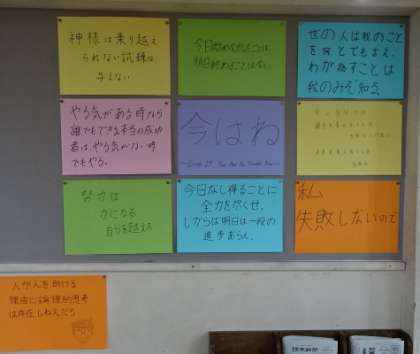 神様は乗り越え
られない試練は
与えない
今日始めなかったことは
明日終わることはない。
世の人は我のことを
何とでも言え、
わが為すことは
我のみぞ知る
やる気がある時なら
誰でもできる本当の成功
者は、やる気がない時
でもやる。
今はね
努力は
力になる
自分を越える
今日なし得ることに
全力を尽くせ、
しからば明日は一段の
進歩あらん。
私
失敗しないので
人が人を助ける
理由に論理的思考
は存在しねえだろ